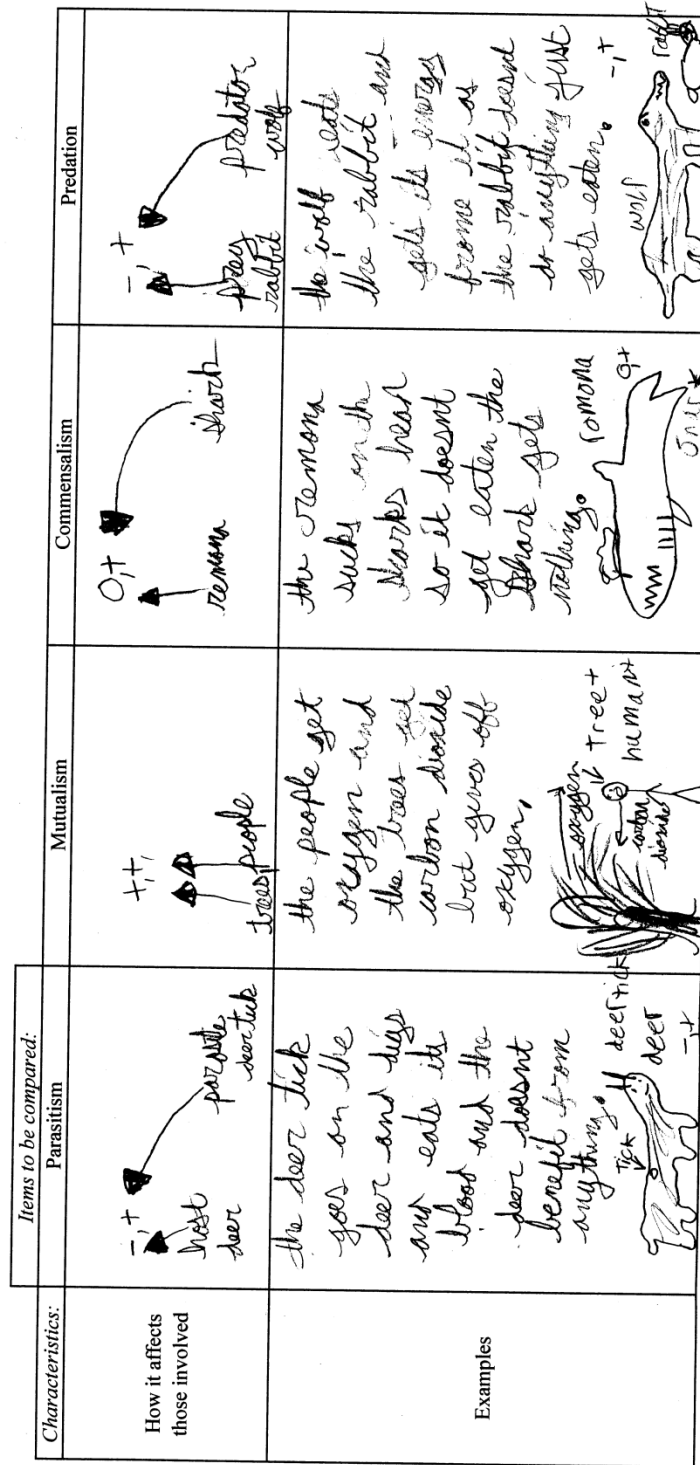 Items to be compared:
Characteristics:
Parasitism
Mutualism
Commensalism
Predation
How it affects
those involved
-,+
host
deer
parasite
deer tick
+,+,
trees
people
0,+
remona
shark
-,+
prey
rabbit
predator
wolf
Examples
the deer tick
goes on the
deer and digs
and eats its
blood and the
deer doesnt
benefit from
anything.
tick
deer tick
deer
-,+
the people get
oxygen and
the trees get
carbon dioxide
but gives off
oxygen,
oxygen
tree+
human+
carbon
dioxide
the remona
sucks on the
sharks head
so it doesnt
get eaten the
shark gets
nothing.
romona
0,+
the wolf eats
the rabbit and
gets its energy
frome it as
the rabbit doesnt
do anything just
gets eaten.
-,+
wolf
rabbit